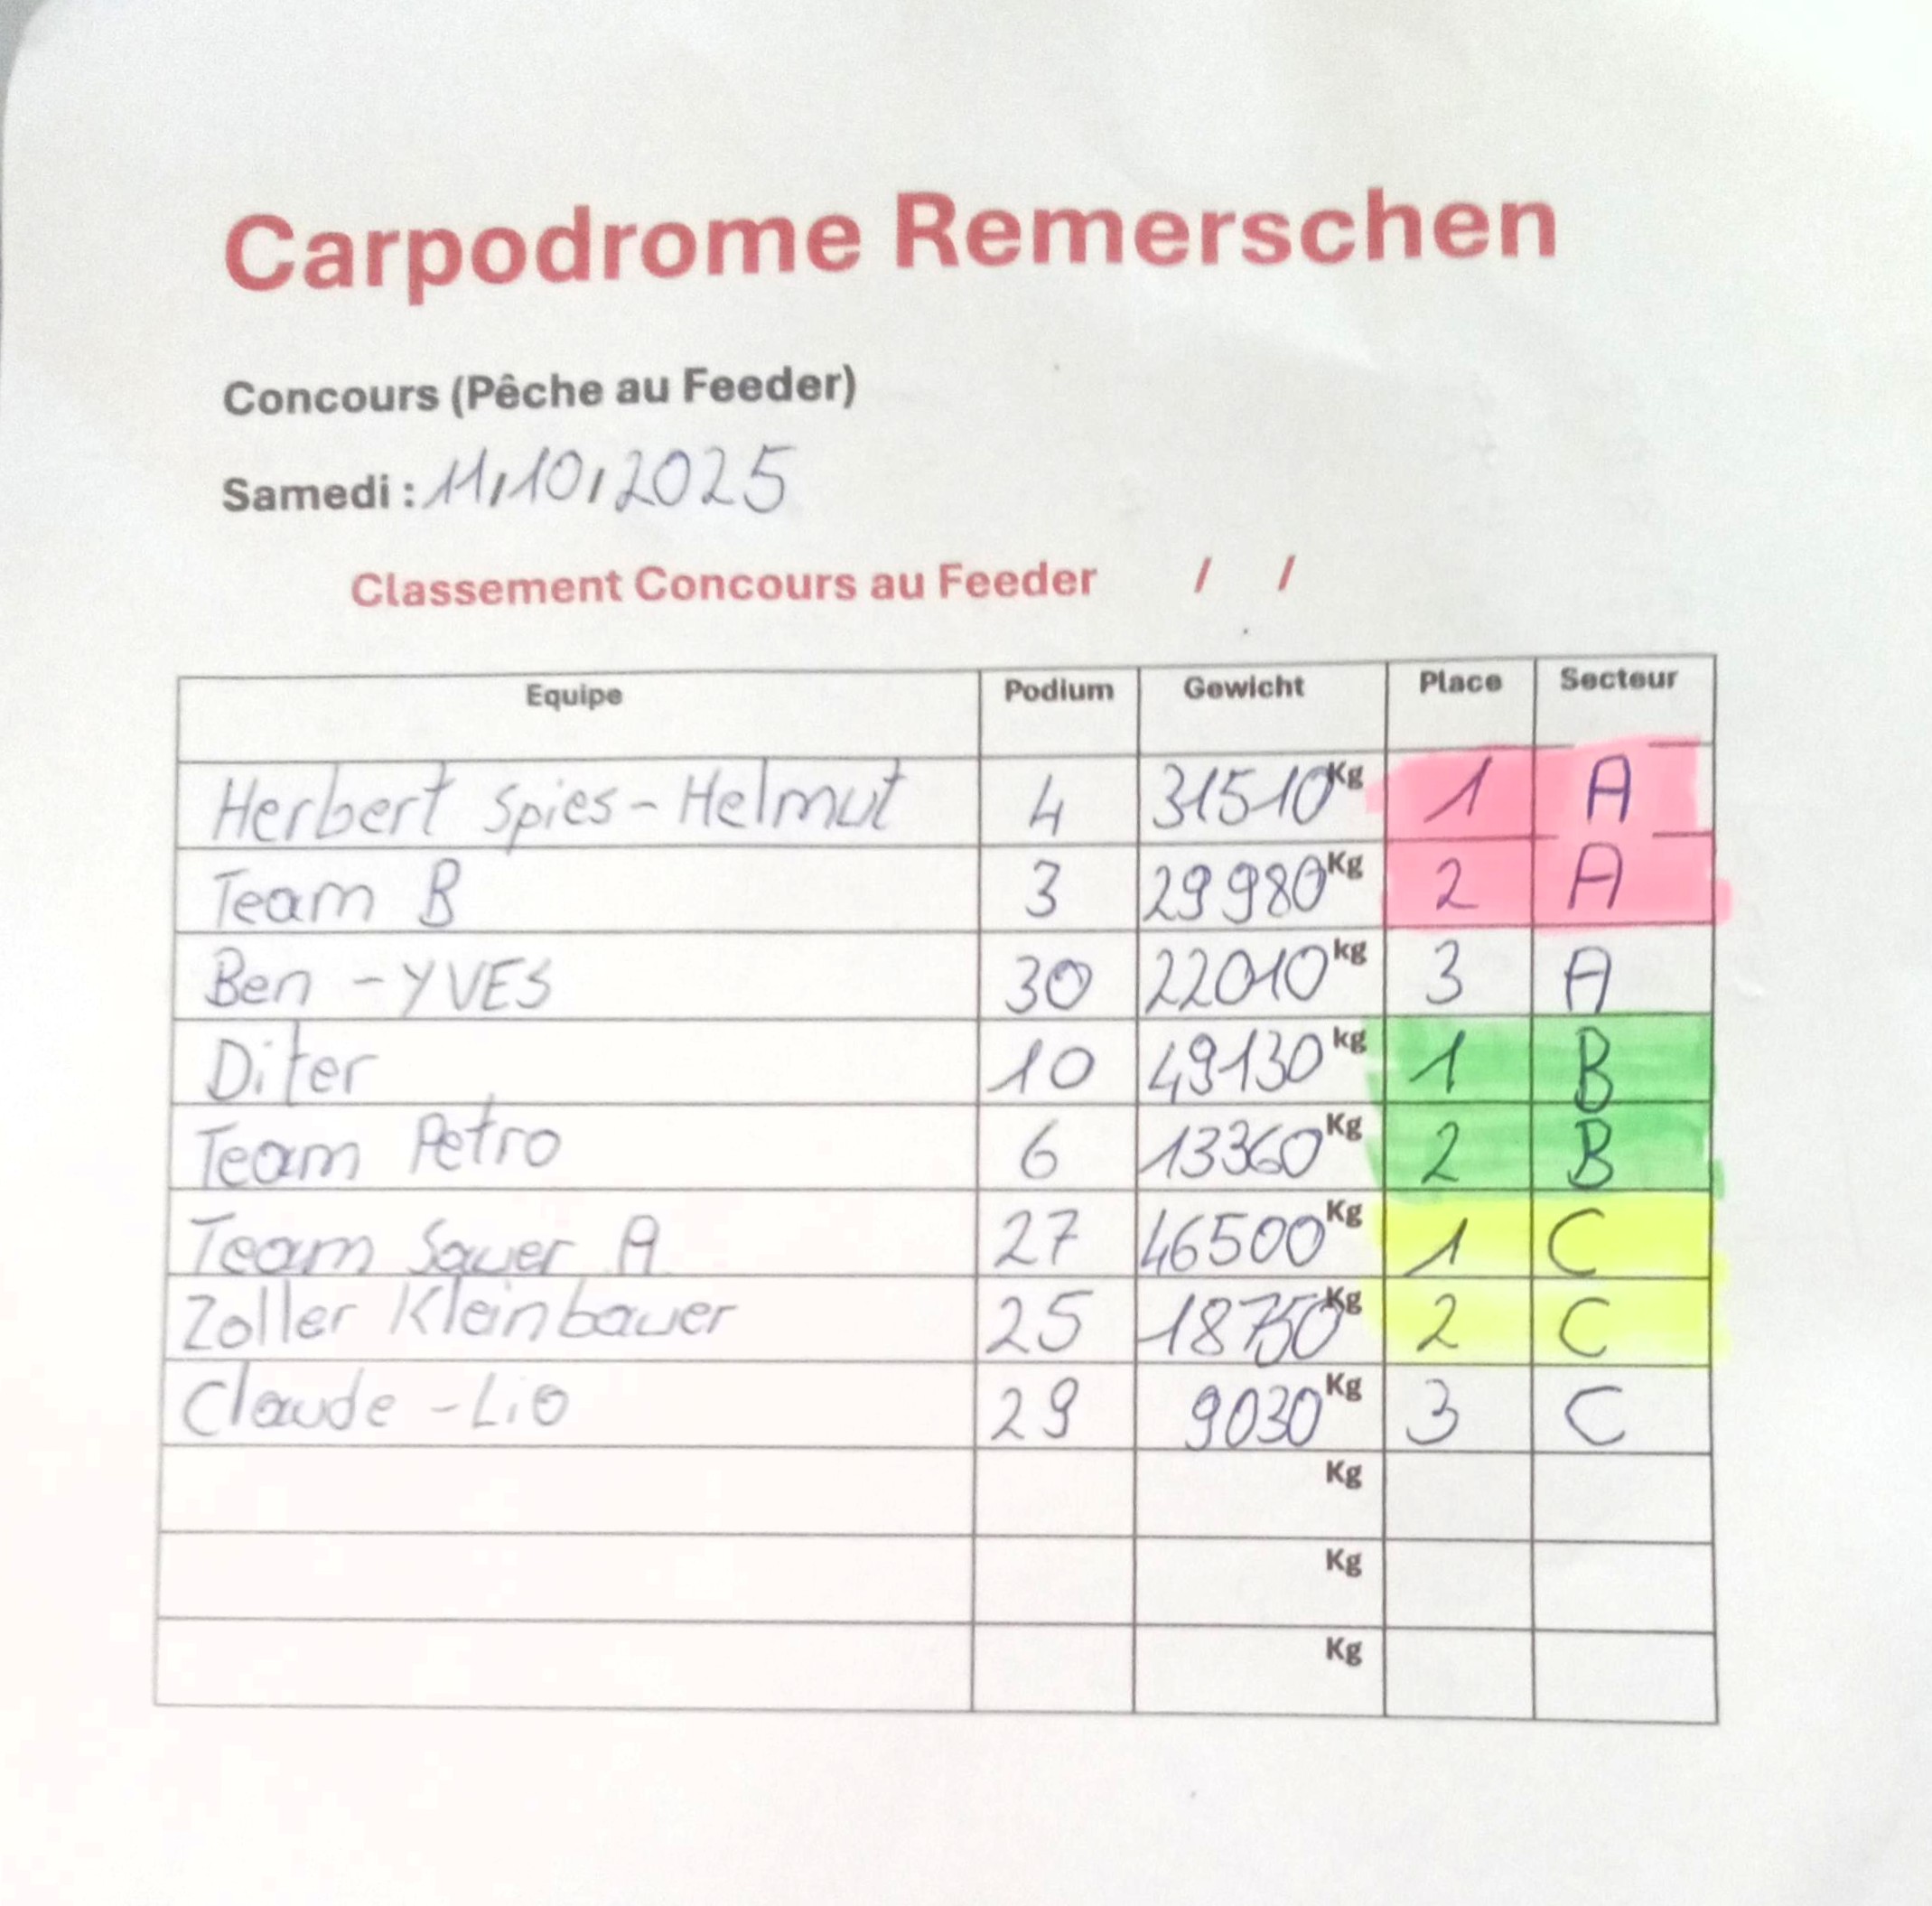 Carpodrome Remerschen
Concours (Pêche au Feeder)
Samedi : 11,10,2025
Classement Concours au Feeder / /
Equipe Podium Gewicht Place Secteur
Herbert Spies - Helmut 4 31510 Kg 1 A
Team B 3 29980 Kg 2 A
Ben - YVES 30 22010 kg 3 A
Diter 10 49130 kg 1 B
Team Petro 6 13360 Kg 2 B
Team Sauer A 27 46500 Kg 1 C
Zoller Kleinbauer 25 18750 Kg 2 C
Claude - Lio 29 9030 Kg 3 C
Kg
Kg
Kg